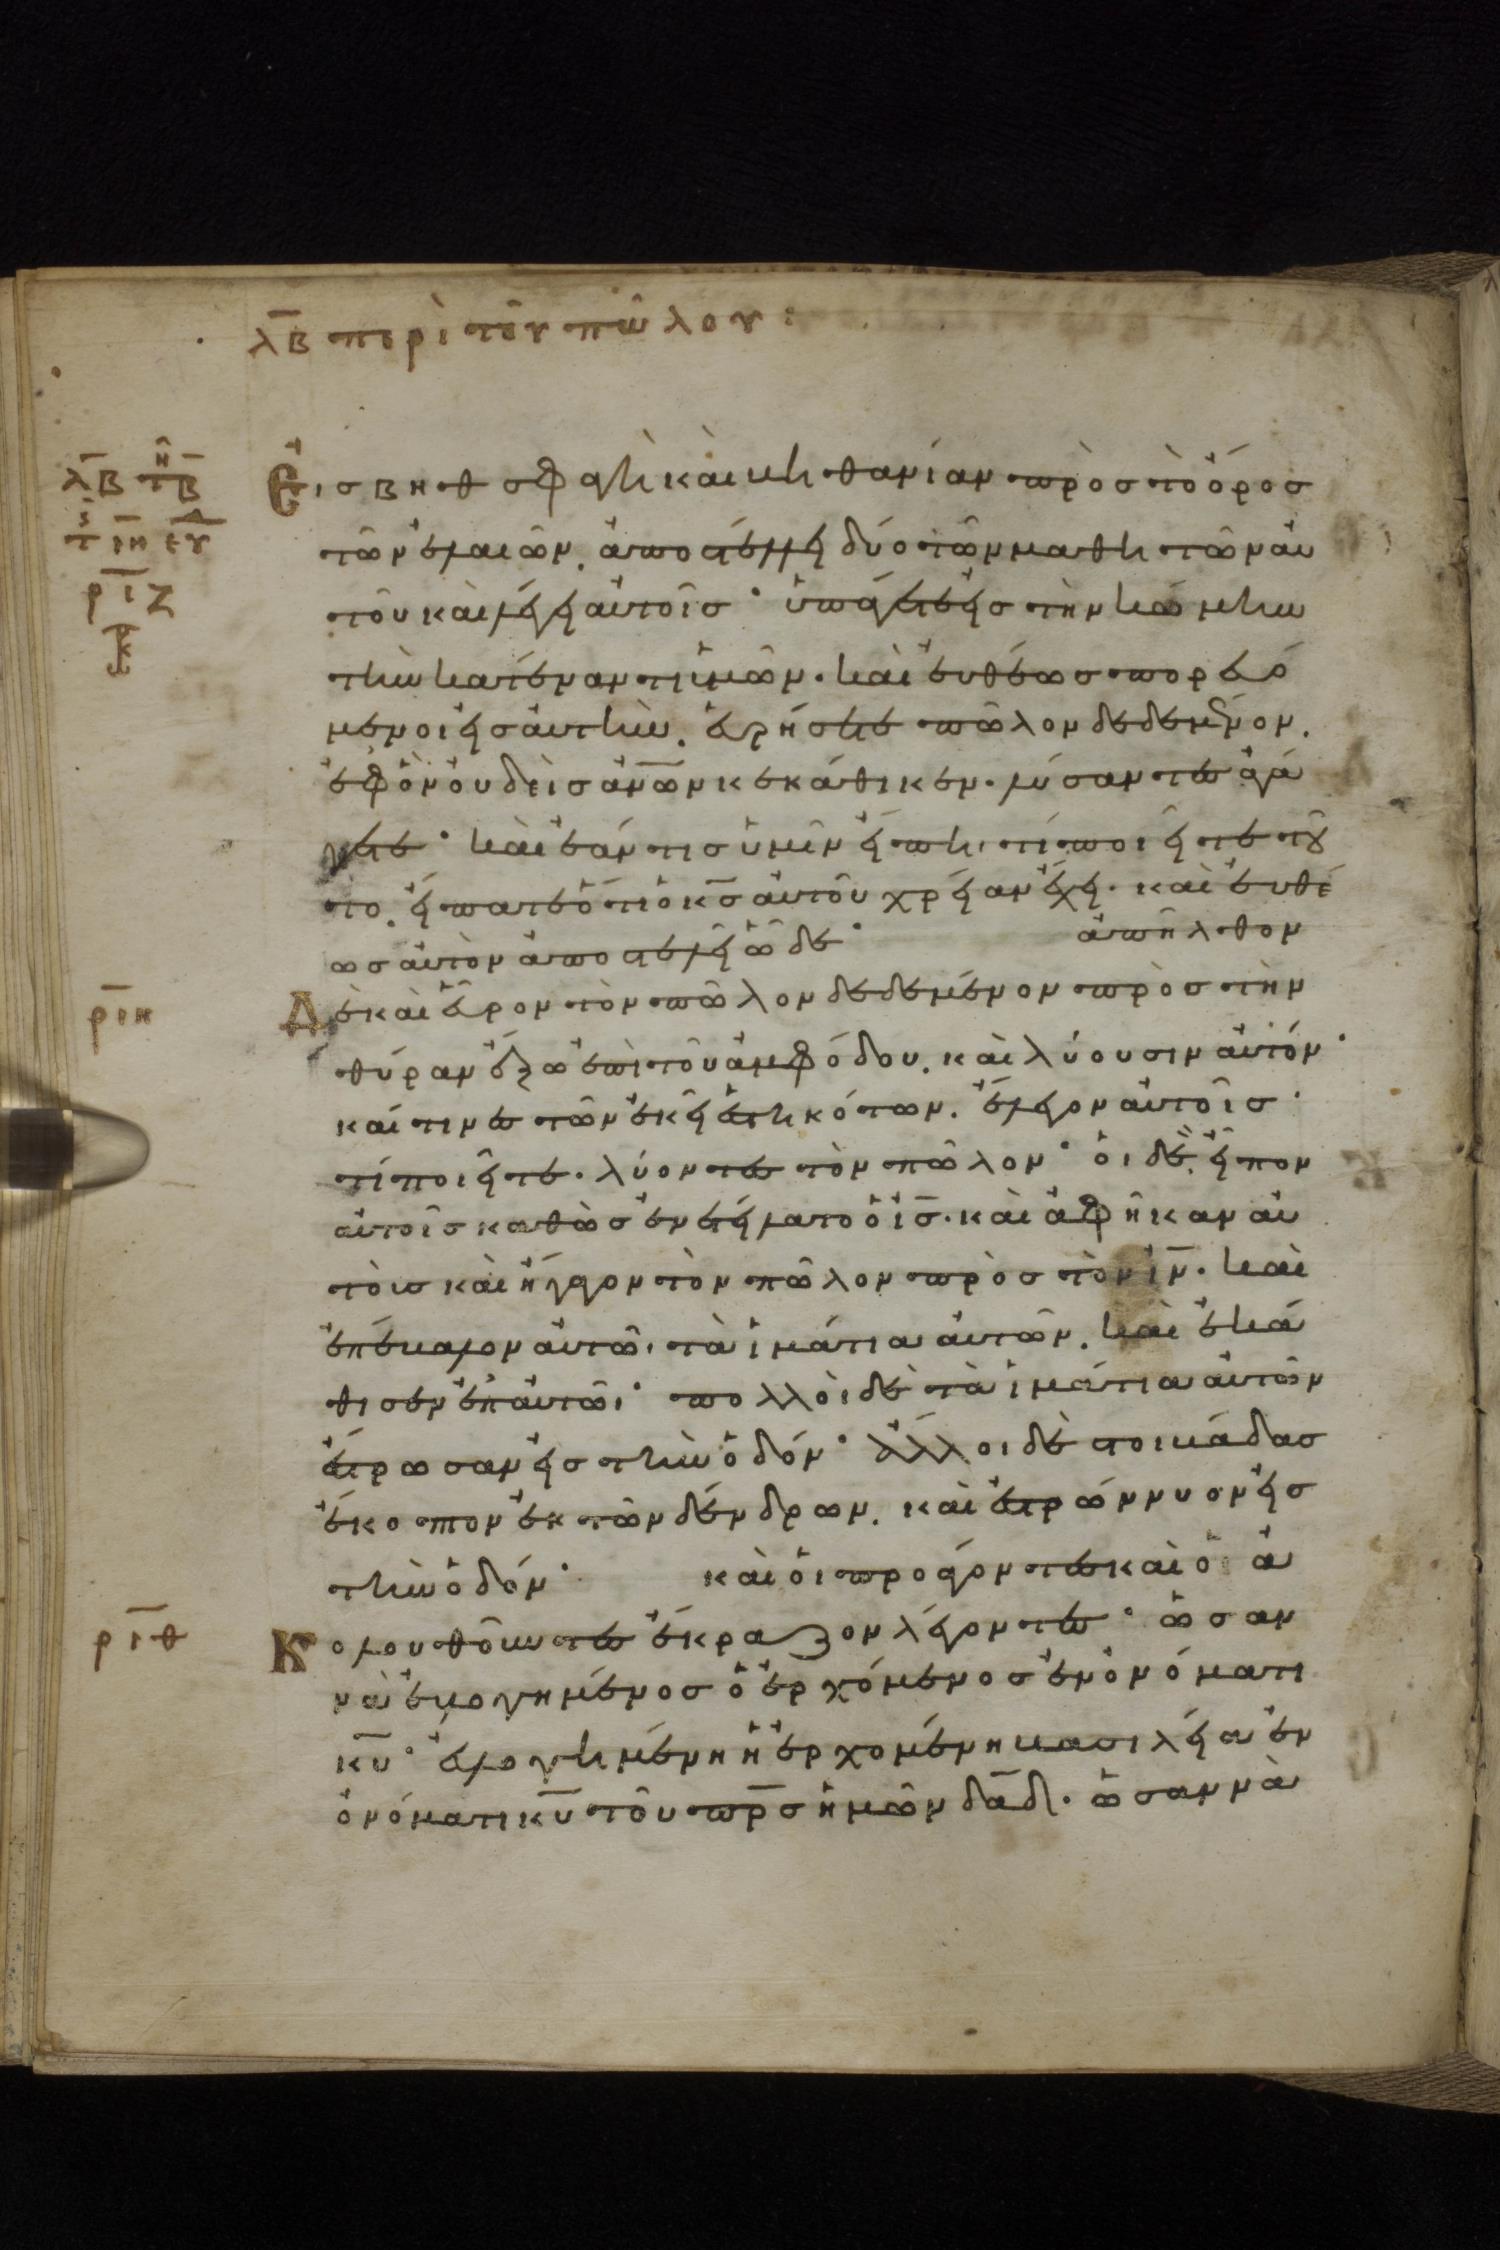 λ̅β̅ περὶ τοῦ πώλου :
λ̅β̅
ρ̅ι̅ζ̅
Εἰς βηθσφαγὴ καὶ βηθανίαν πρὸς τὸ ὄρος
τῶν ἐλαιῶν. ἀποστέλλει δύο τῶν μαθητῶν αὐ
τοῦ καὶ λέγει αὐτοῖς· ὑπάγετε εἰς τὴν κώμην
τὴν κατέναντι ὑμῶν. καὶ εὐθέως πορευό
μενοι εἰς αὐτὴν. εὑρήσετε πῶλον δεδεμένον.
ἐφ ὃν οὐδεὶς ἀν̅ω̅ν κεκάθικεν. λύσαντες ἀγά
γετε· καὶ ἐάν τις ὑμῖν εἴπη, τί ποιεῖτε τοῦ
το. εἴπατε ὅτι ὁ κ̅ς̅ αὐτοῦ χρείαν ἔχει. καὶ εὐθέ
ως αὐτὸν ἀποστελεῖ ὧδε· ἀπῆλθον
ρ̅ι̅η̅
Δὲ καὶ εὗρον τὸν πῶλον δεδεμένον πρὸς τὴν
θύραν ἔξω ἐπὶ τοῦ ἀμφόδου. καὶ λύουσιν αὐτόν·
καί τινες τῶν ἐκεῖ ἑστηκότων. ἔλεγον αὐτοῖς·
τί ποιεῖτε. λύοντες τὸν πῶλον· οἱ δὲ εἶπον
αὐτοῖς καθὼς ἐνετείλατο ὁ ι̅ς̅. καὶ ἀφῆκαν αὐ
τοὺς καὶ ἤγαγον τὸν πῶλον πρὸς τὸν ι̅ν̅. καὶ
ἐπέβαλον αὐτῶ, τὰ ἱμάτια αὐτῶν. καὶ ἐκά
θισεν ἐπ αὐτῶι· πολλοὶ δὲ τὰ ἱμάτια αὐτῶν
ἔστρωσαν εἰς τὴν ὁδόν· ἄλλοι δὲ στοιβάδας
ἔκοπτον ἐκ τῶν δένδρων. καὶ ἐστρώννυον εἰς
τὴν ὁδόν· καὶ οἱ προάγοντες καὶ οἱ ἀ
ρ̅ι̅θ̅
Κολουθοῦντες ἔκραζον λέγοντες· ὡσαν
νὰ εὐλογημένος ὁ ἐρχόμενος ἐν ὀνόματι
κ̅υ̅· εὐλογημένη ἡ ἐρχομένη βασιλεία ἐν
ὀνόματι κ̅υ̅ τοῦ π̅ρ̅ς̅ ἡμῶν δ̅α̅δ̅. ὡσαννὰ